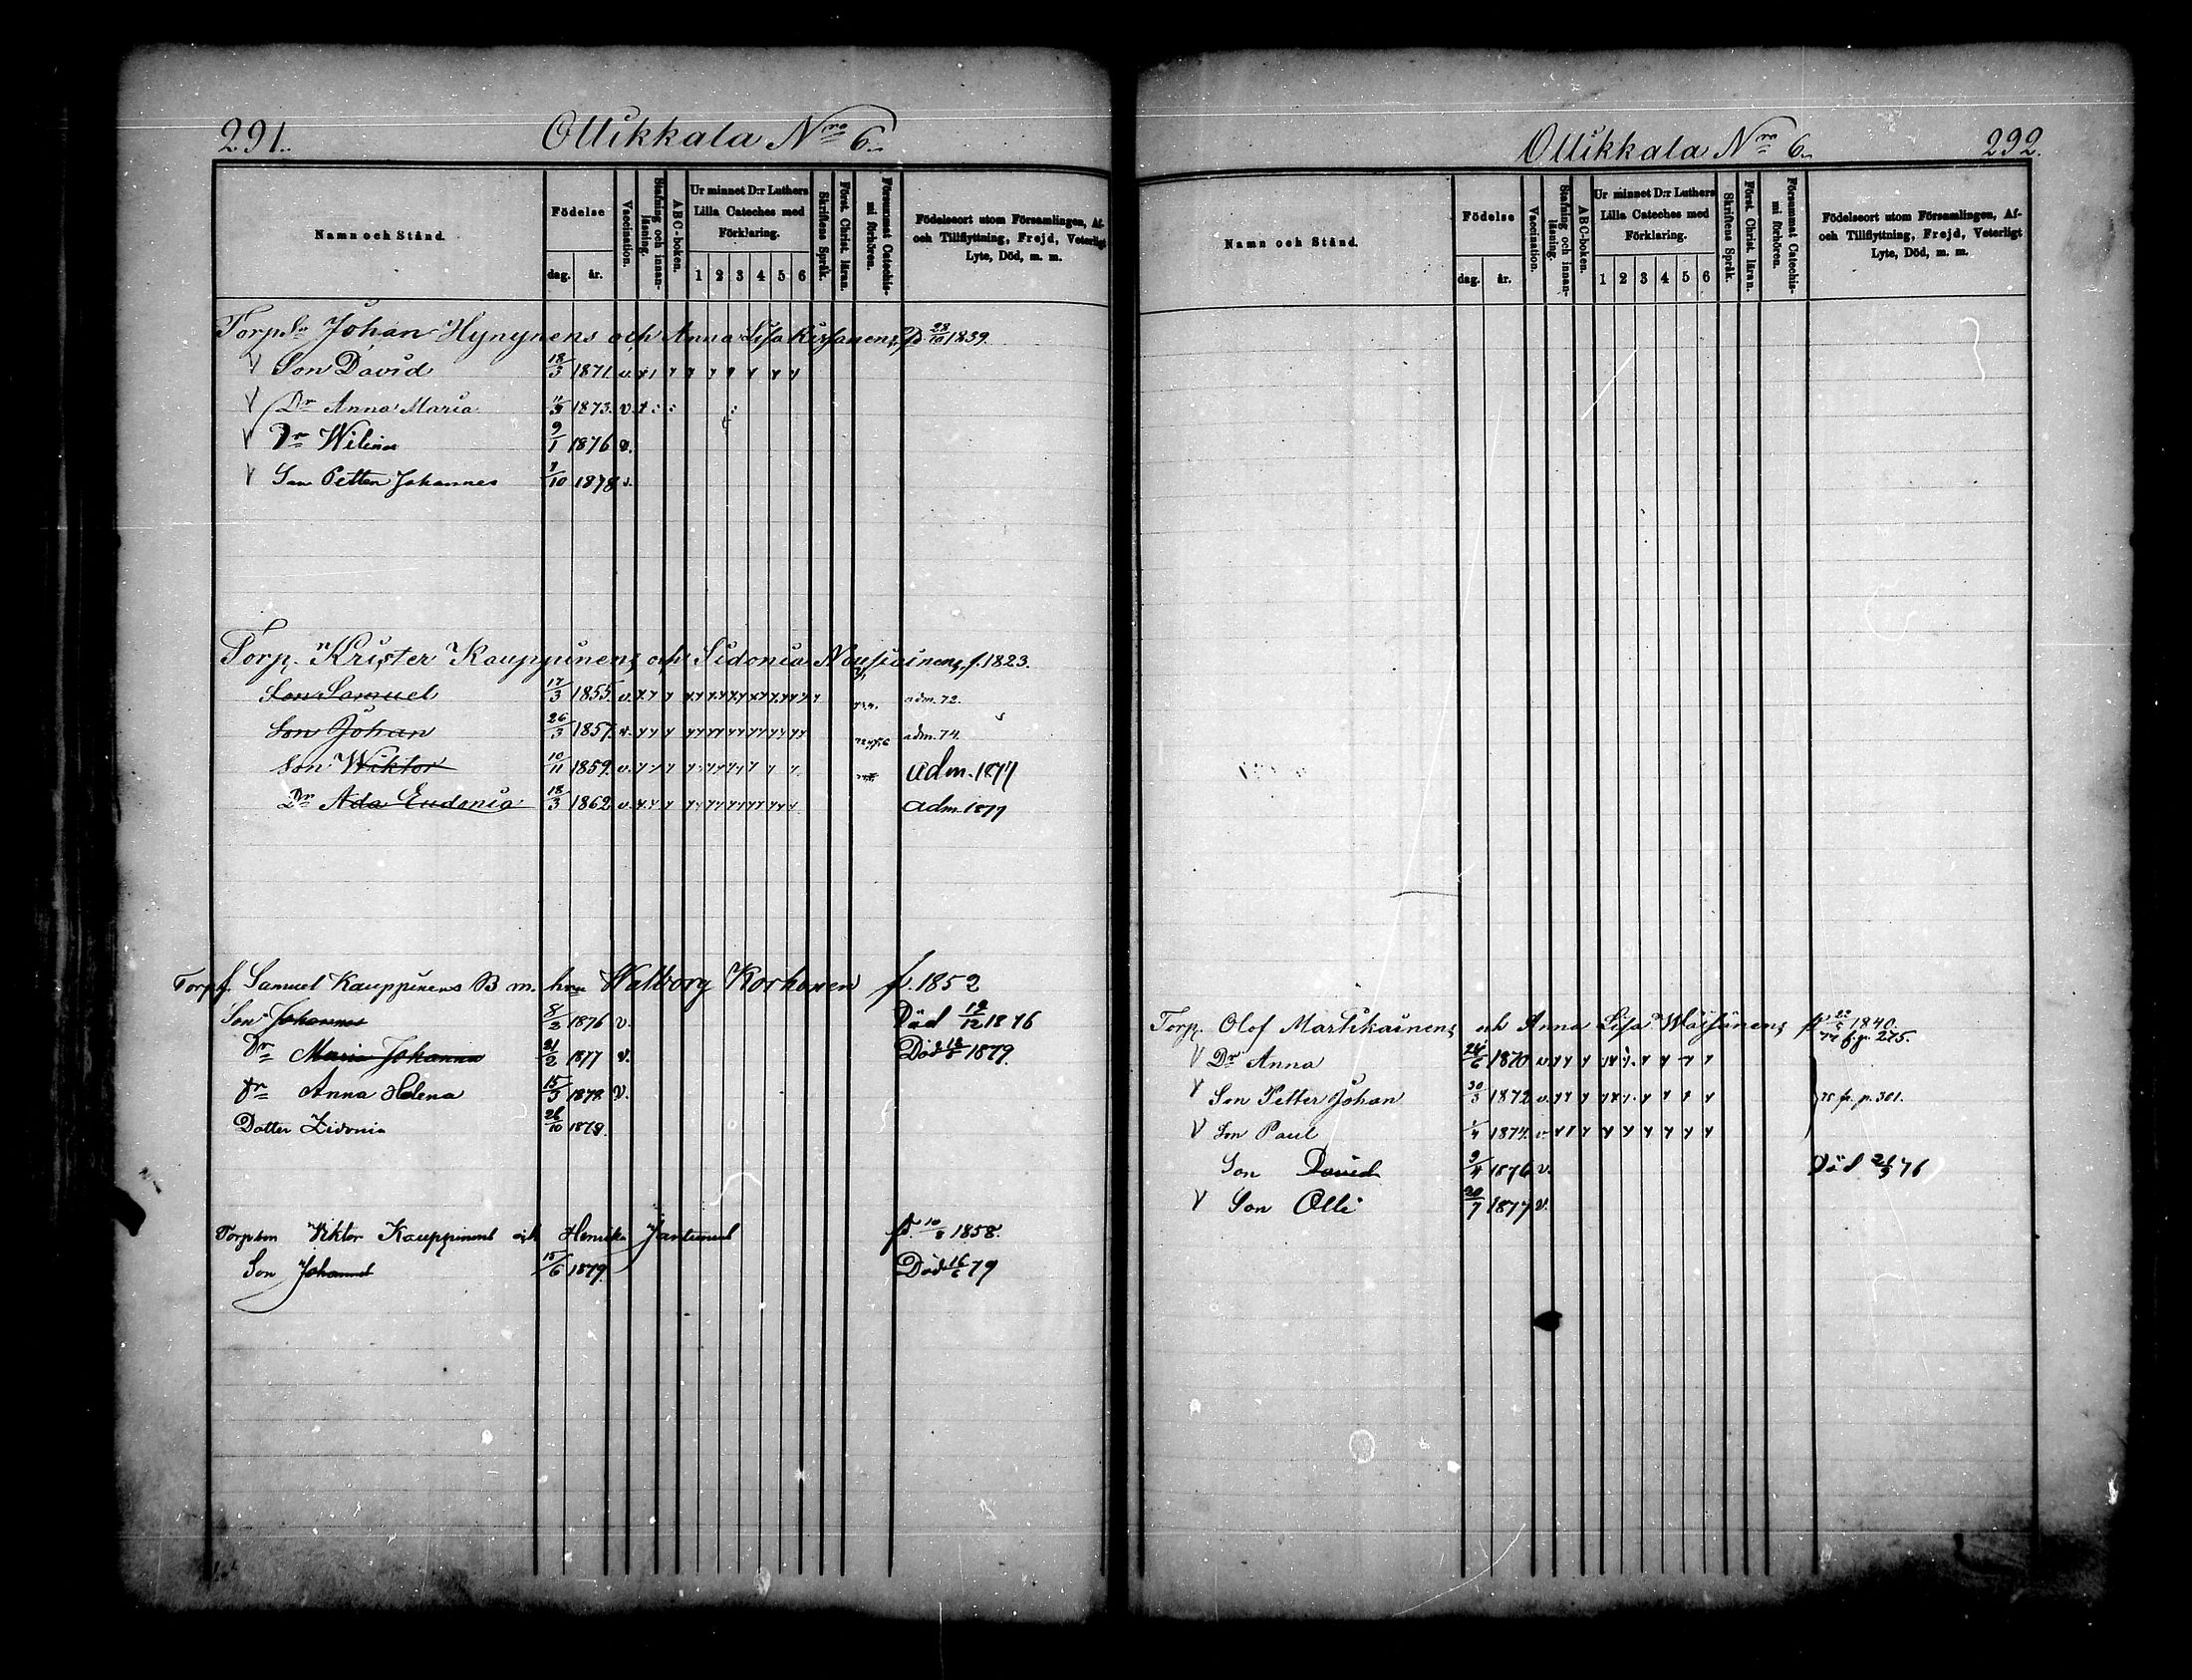 291.
Ollikkala Nro 6.
Namn och Stånd.
Födelse
dag.
år.
Vaccination.
Stafning och innanläsning.
ABC-boken.
Ur minnet D:r Luthers
Lilla Cateches med
Förklaring.
1 2 3 4 5 6
Skriftens Språk.
Först. Christ. läran.
Försummat Catechismi förhören.
Födelseort utom Församlingen, Af-
och Tillflyttning, Frejd, Veterligt
Lyte, Död, m. m.
Johan Hynynens och Anna Lisa 28/10 1839
Son David 18/3 1871 v.
Dr Anna Maria 1873. v.
Dr Wilina 9/1 1876 v.
Son Petter Johannes 7/10 1878 v.
Torp. Krister Kauppinens och Sidonia Nousiainens f. 1823.
Son Samuel 17/3 1855. v. adm. 72.
Son Johan 26/3 1857. v. adm. 74.
Son Wiktor 10/11 1859. v. adm. 1877
Dr Ada Eudonia 18/3 1862 v. adm 1877
Samuel Kauppinens B m. hru Walborg Korhonen f. 1852
Son Johannes 8/2 1876 v. Död 19/12 1876
Dr Maria Johanna 21/2 1877 v. Död 1879.
Dr Anna Helena 15/3 1878 v.
Dotter Zidonia 26/10 1879.
Torpson Viktor Kauppinens och Henrika f. 10/8 1858.
Son Johannes 15/6 1879. Död 16/6 79
Ollikkala Nro 6.
292.
Namn och Stånd.
Födelse
dag.
år.
Vaccination.
Stafning och innanläsning.
ABC-boken.
Ur minnet D:r Luthers
Lilla Cateches med
Förklaring.
1 2 3 4 5 6
Skriftens Språk.
Först. Christ. läran.
Försummat Catechismi förhören.
Födelseort utom Församlingen, Af-
och Tillflyttning, Frejd, Veterligt
Lyte, Död, m. m.
Torp. Olof Martikainens och Anna Lisa Wäisänens 1840.
275.
Dr Anna 24/6 1870 v.
Son Petter Johan 30/3 1872 v. 75 fr. p. 301.
Son Paul 1/4 1874. v.
Son David 9/4 1876 v. Död 76
Son Olli 20/7 1877 v.